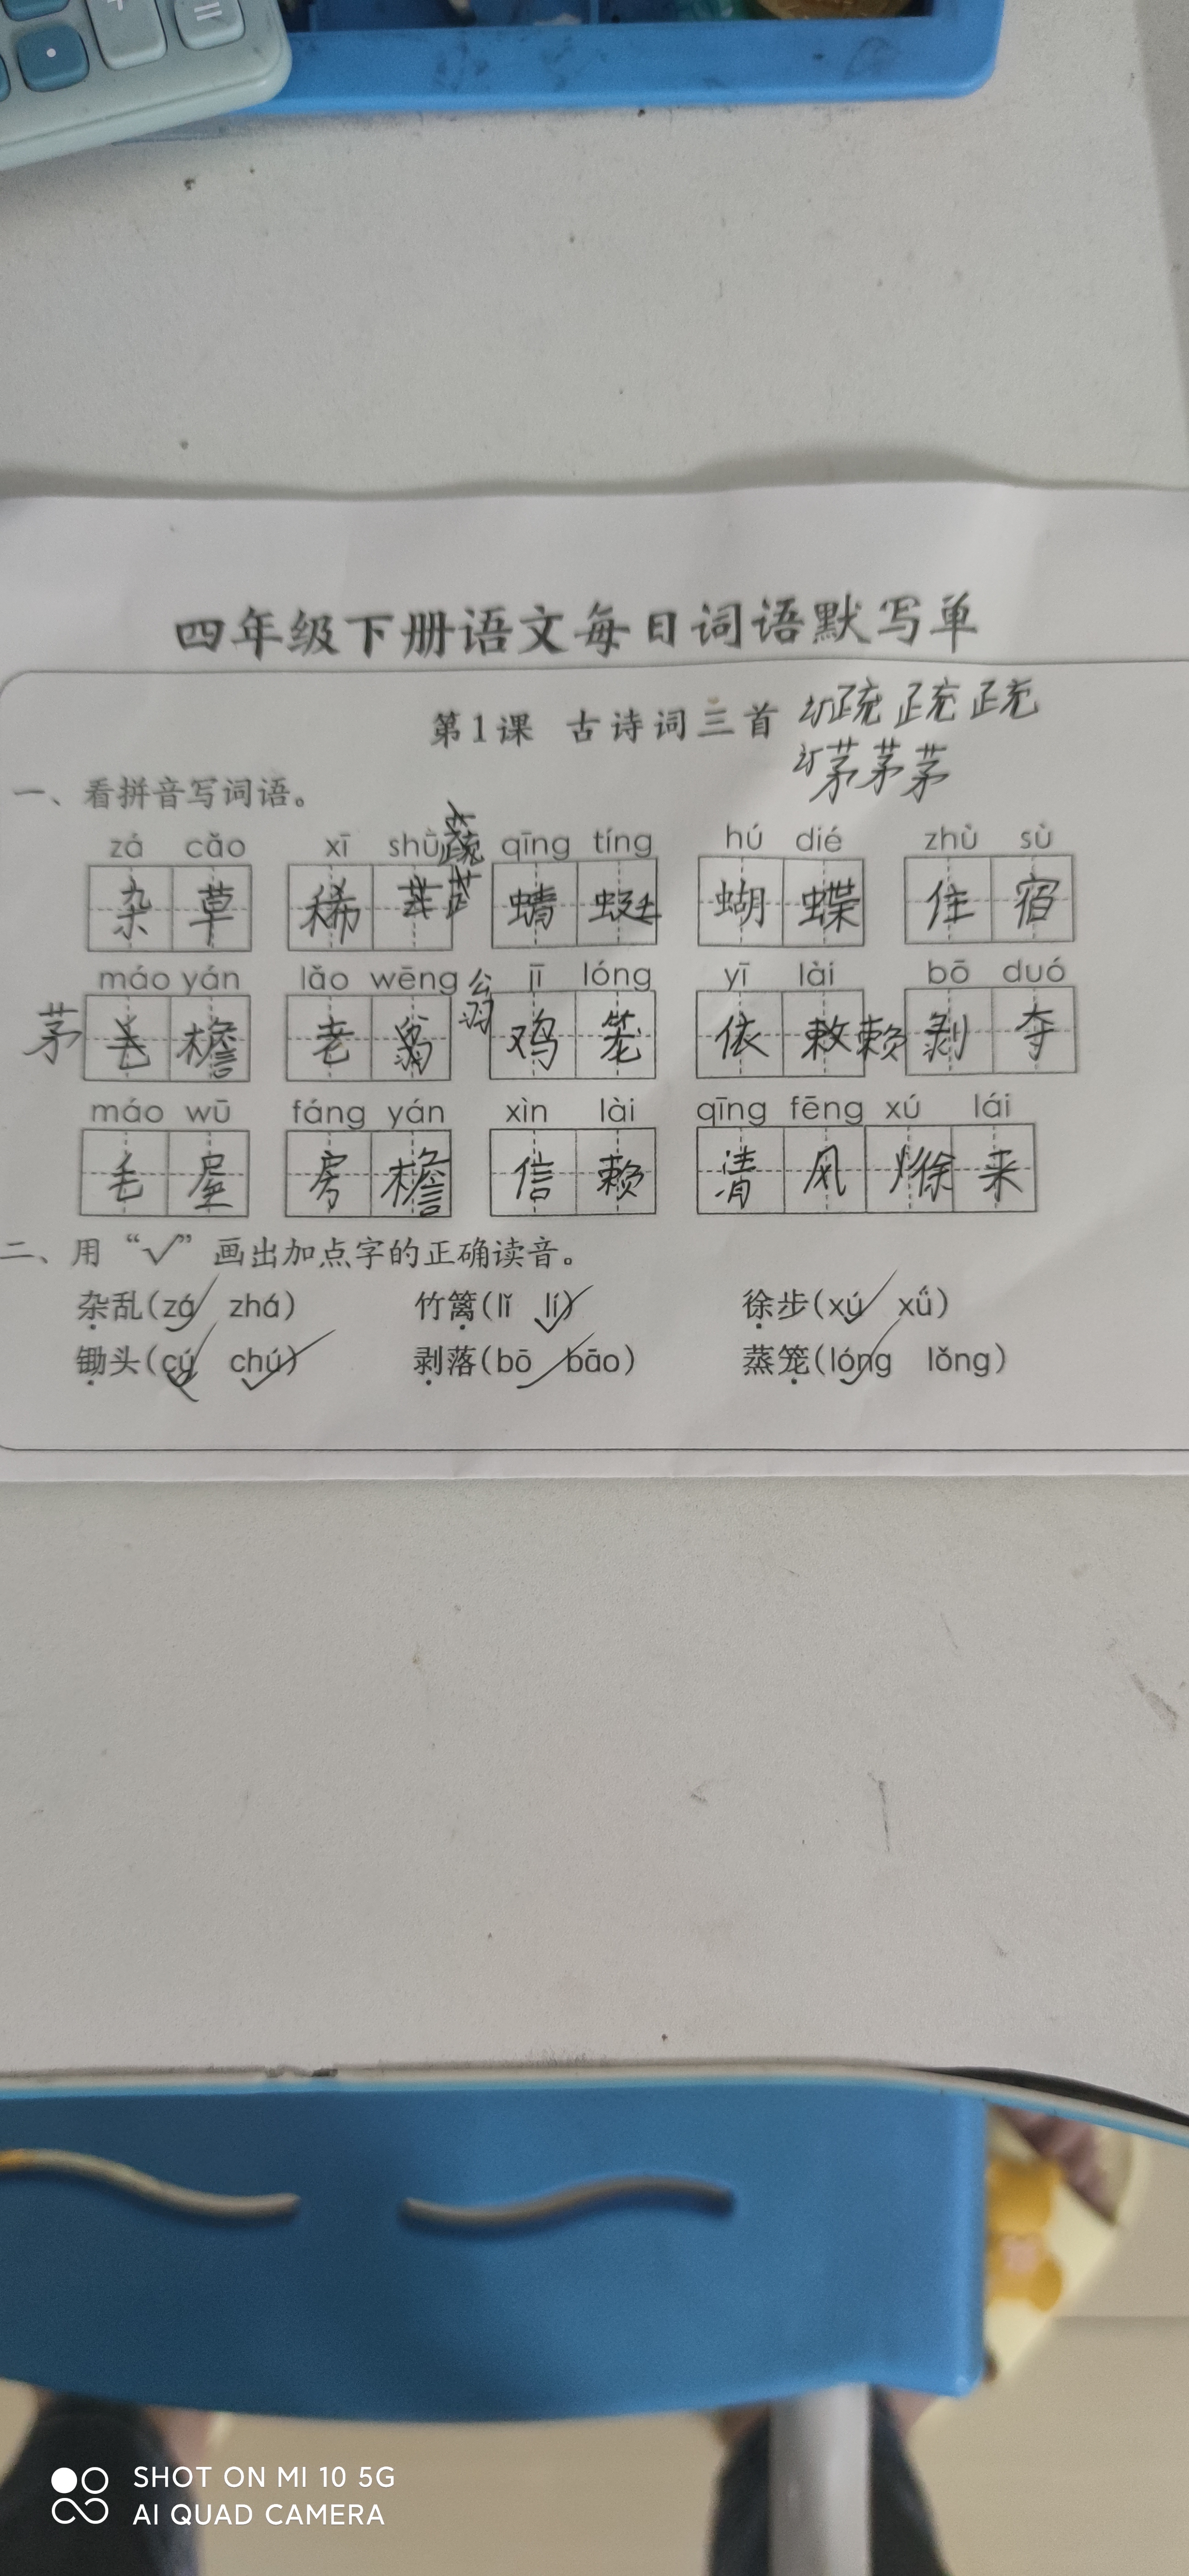 =
四年级下册语文每日词语默写单
第1课 古诗词三首 订疏 疏 疏
订茅茅茅
一、看拼音写词语。
zá cǎo xī shū qīng tíng hú dié zhù sù
杂草 稀 蔬 蜻蜓 蝴蝶 住宿
máo yán lǎo wēng jī lóng yī lài bō duó
茅 毛檐 老翁 翁 鸡笼 依 赖 剥夺
máo wū fáng yán xìn lài qīng fēng xú lái
毛屋 房檐 信赖 清风 徐来
二、用“√”画出加点字的正确读音。
杂乱(zá zhá) 竹篱(lǐ lí) 徐步(xú xǘ)
锄头(cú chú) 剥落(bō bāo) 蒸笼(lóng lǒng)
SHOT ON MI 10 5G
AI QUAD CAMERA